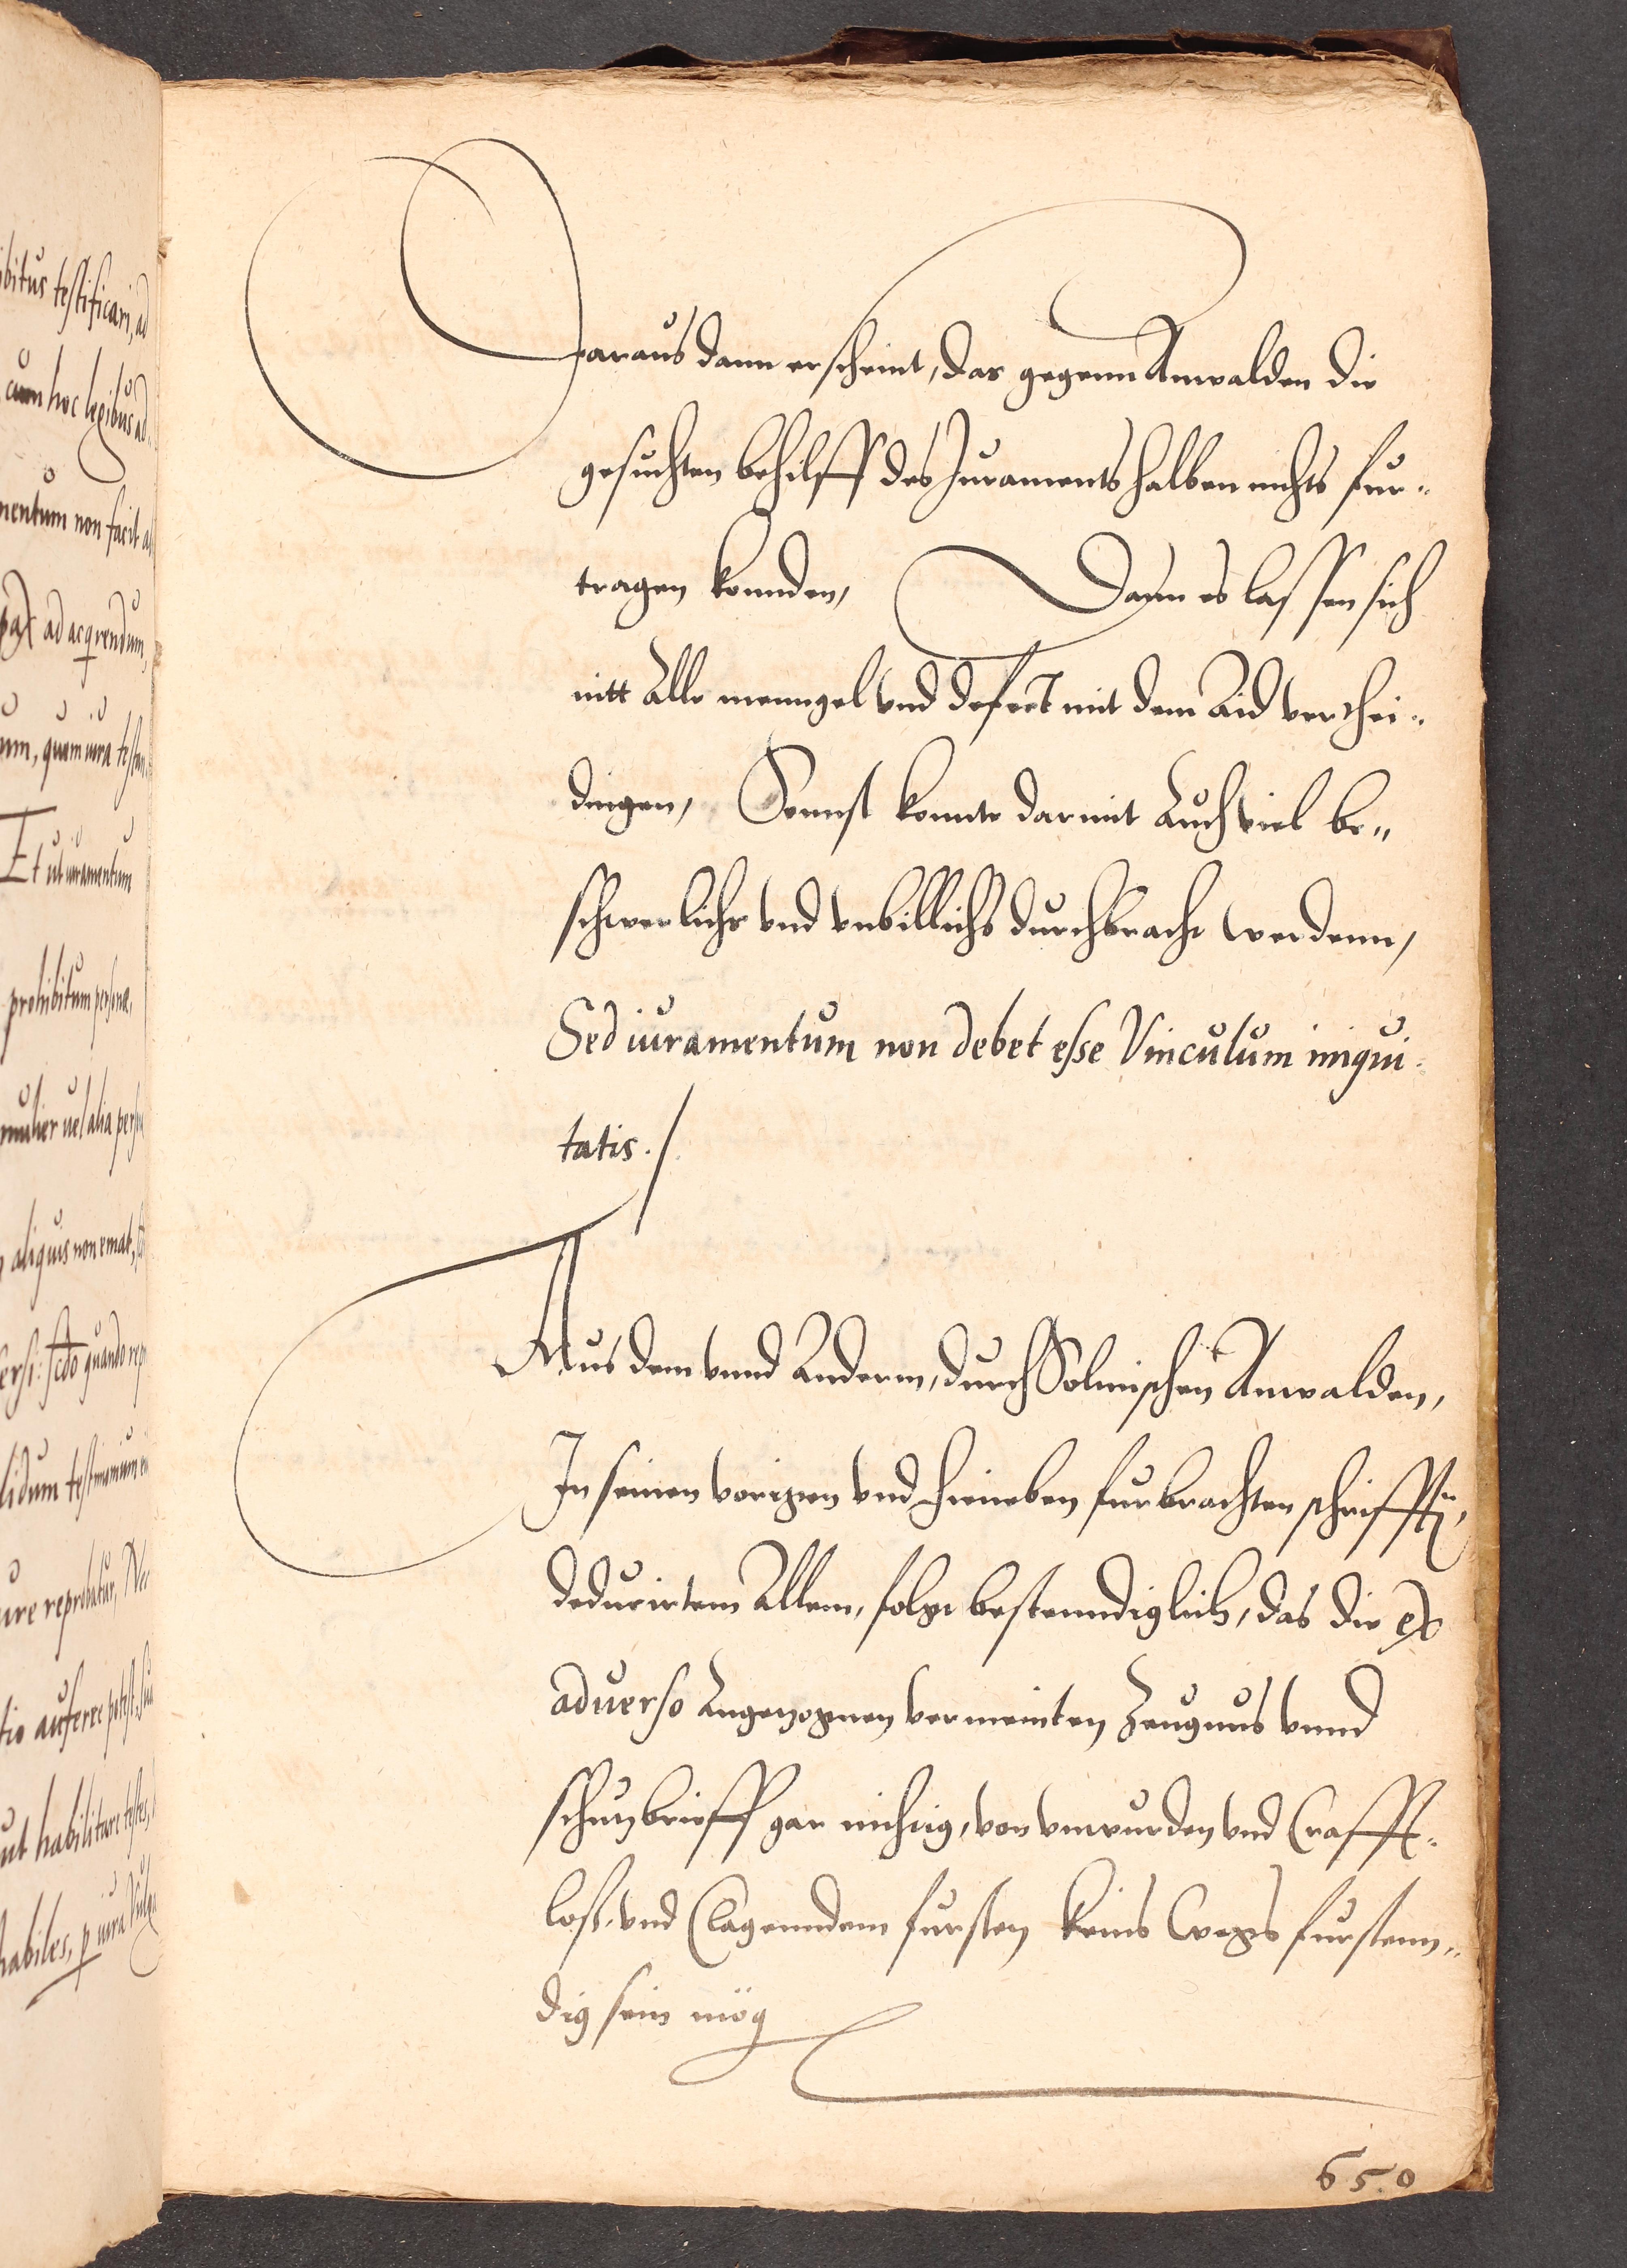 ibitus testificari, ad
cum hoc legibus ad
mentum non facit a
pax ad acqrendum,
um, quam iura testan
Et ut iuramentum
prohibitum persona
mulier uel alia perso
aliquis non emat,
ersi: secto quando rep
lidum testimonium
iure reprobatur, Nec
tio auferre potest, sua
ut habilitare testes,
habiles, p iura Vulga
Daraus dann erscheint, das gegenn Anwalden die
gesuchten behilff des Juraments halben nichts fur„
tragen konnden, Dann es lassen sich
nitt Alle menngel vnd defect mit dem Aid verthei„
dingen, Sonnst konnte darmit Auch viel be„
schwerlichs vnd vnbillichs durchbracht werdenn,
Sed iuramentum non debet esse Vinculum iniqui„
tatis./.
Aus dem vnnd Anderm, durch Solmischen Anwalden,
In seinen vorigen vnd hieneben furbrachten schrifften,
deducirtem Allem, folgt bestenndiglich, das die ex
aduerso Angezognen vermeinten Zeugnus vnnd
schutzbrieff gar nichtig, von vnwurden vnd Crafft„
loß, vnd Clagenndem fursten keins wegs furstenn„
dig sein mög
650